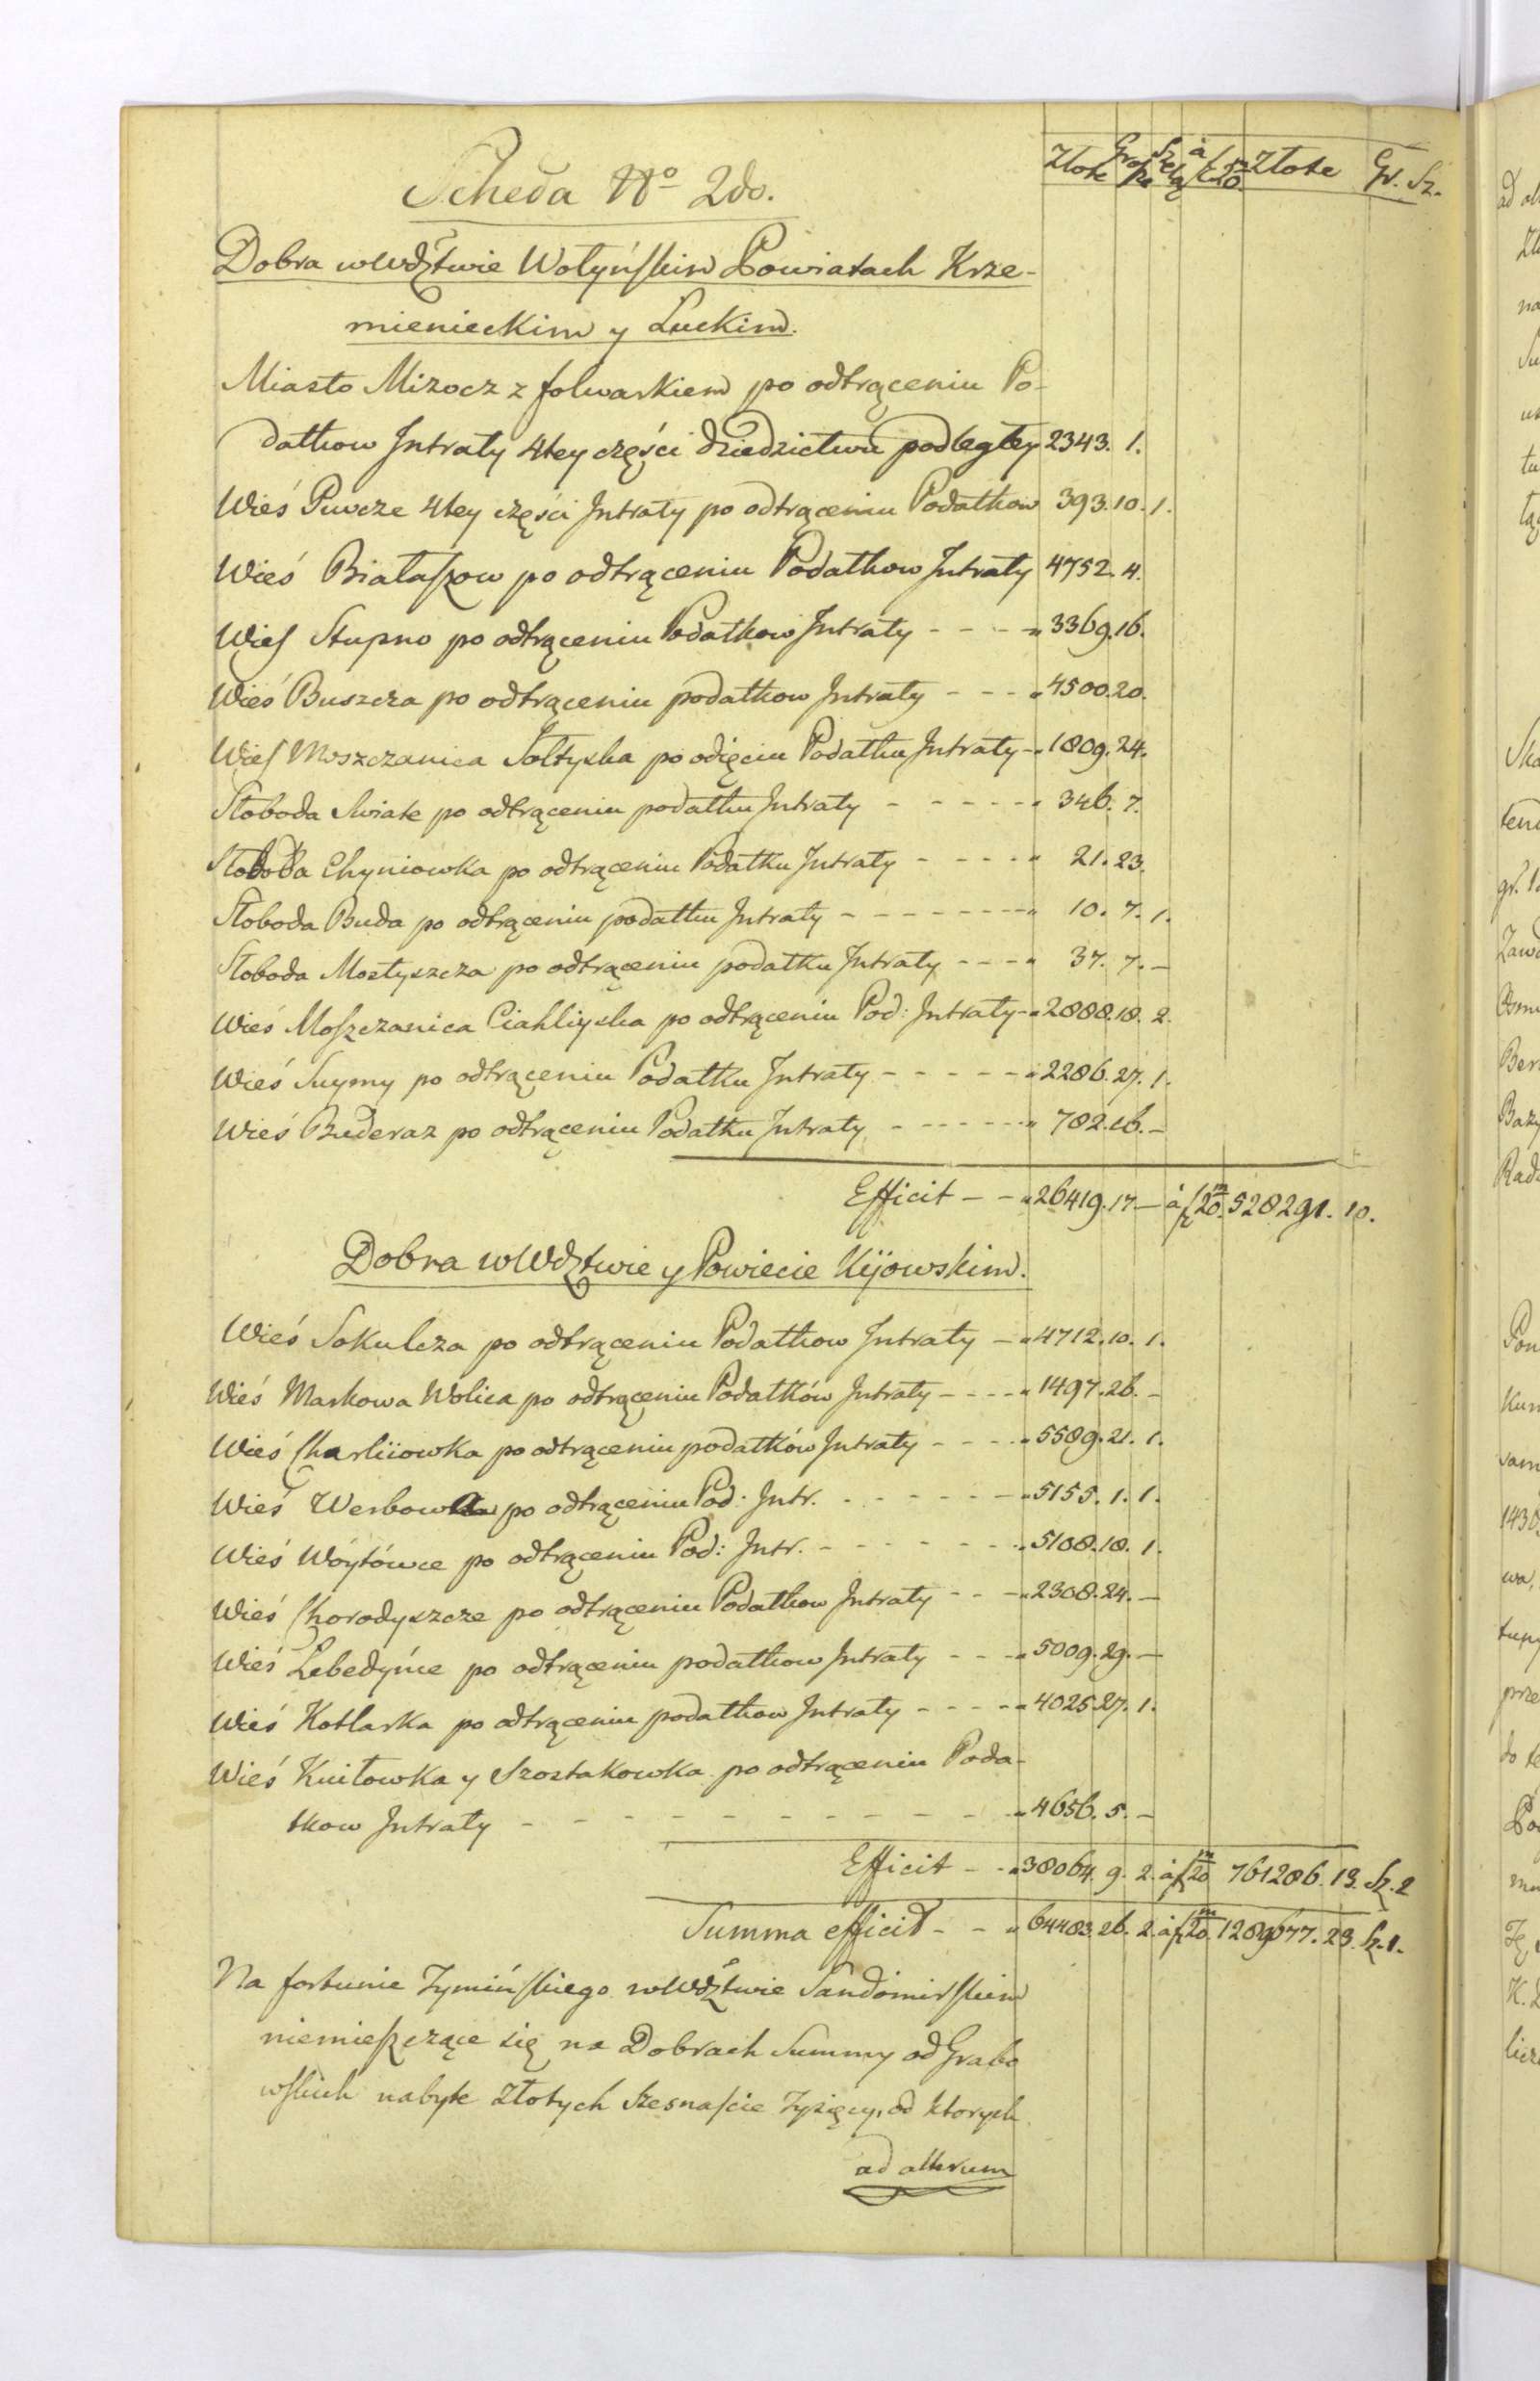 Złote Grosze Szeląg à f m/20 Złote Gr. Sz.
Scheda No 2do.
Dobra w Wdztwie Wołyńskim Powiatach Krze-
mienieckim y Łuckim.
Miasto Mizocz z folwarkiem po odtrąceniu Po-
datkow Intraty 4tey części dziedzictwu podległey 2343. 1.
Wieś Piwcze 4tey części Intraty po odtrąceniu Podatkow 393. 10. 1.
Wieś Białaszow po odtrąceniu Podatkow Intraty 4752. 4.
Wieś Stupno po odtrąceniu Podatkow Intraty - - - - 3369. 16.
Wieś Buszcza po odtrąceniu podatkow Intraty - - - - 4500. 20.
Wieś Moszczanica Sołtyska po odięciu Podatku Intraty - 1809. 24.
Słoboda Swiate po odtrąceniu podatku Intraty - - - - - - 346. 7.
Słoboda Chyniowka po odtrąceniu Podatku Intraty - - - - - 21. 23.
Słoboda Buda po odtrąceniu podatku Intraty - - - - - - - - 10. 7. 1.
Słoboda Mostyszcza po odtrąceniu podatku Intraty - - - - 37. 7. -
Wieś Moszczanica Ciahliyska po odtrąceniu Pod: Intraty - 2888. 18. 2.
Wieś Suymy po odtrąceniu Podatku Intraty - - - - - - 2286. 27. 1.
Wieś Buderaz po odtrąceniu Podatku Intraty - - - - - - 782. 26. -
Efficit - - 26419. 17 - à f m/20. 528291. 10.
Dobra w Wdztwie y Powiecie Kijowskim.
Wieś Sokulcza po odtrąceniu Podatkow Intraty - 4712. 10. 1.
Wieś Markowa Wolica po odtrąceniu Podatków Intraty - - - - 1497. 26. -
Wieś Charliiowka po odtrąceniu podatków Intraty - - - - 5589. 21. 1.
Wieś Werbowa po odtrąceniu Pod: Intr. - - - - - - - 5155. 1. 1.
Wieś Wóytówce po odtrąceniu Pod: Intr. - - - - - - - 5108. 18. 1.
Wieś Chorodyszcze po odtrąceniu Podatkow Intraty - - - 2308. 24. -
Wieś Lebedyńce po odtrąceniu podatkow Intraty - - - 5009. 29. -
Wieś Kotlarka po odtrąceniu podatkow Intraty - - - - - 4025. 27. 1.
Wieś Kniłowka y Szostakowka po odtrąceniu Poda-
tkow Intraty - - - - - - - - - - - 4656. 5. -
Efficit - - 38064. 9. 2. à f m/20 761286. 13. Sz. 2
Summa efficit - - 64483. 26. 2. à f m/20. 1289677. 23. Sz. 1.
Na fortunie Zymińskiego w Wdztwie Sandomirskim
niemieszczące się na Dobrach Summy od Grabo
wskich nabyte Złotych Szesnaście Tysięcy, od ktorych
ad alterum